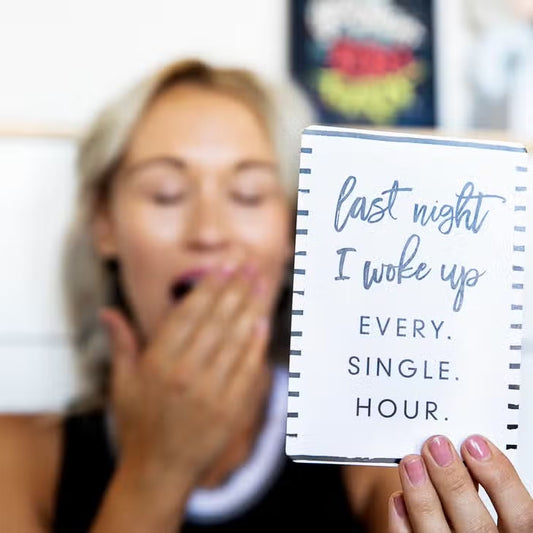 last night
I woke up
EVERY.
SINGLE.
HOUR.